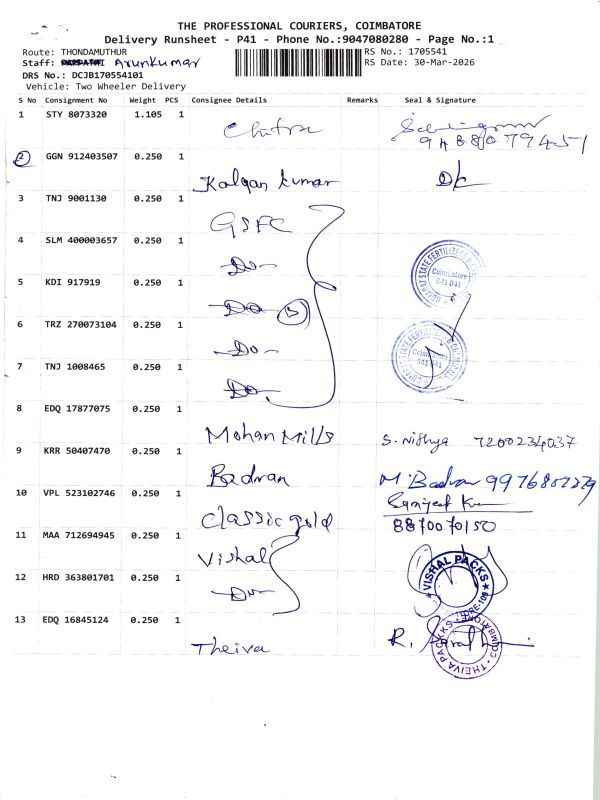 THE PROFESSIONAL COURIERS, COIMBATORE
Delivery Runsheet - P41 - Phone No.:9047080280 - Page No.:1
Route: THONDAMUTHUR RS No.: 1705541
Staff: Arunkumar RS Date: 30-Mar-2026
DRS No.: DCJB170554101
Vehicle: Two Wheeler Delivery
S No Consignment No Weight PCS Consignee Details Remarks Seal & Signature
1 STY 8073320 1.105 1 Chitra
9488079451
2 GGN 912403507 0.250 1 Kalyan kumar
3 TNJ 9001130 0.250 1 GSFC
4 SLM 400003657 0.250 1 -Do-
Coimbatore
641 041
5 KDI 917919 0.250 1 -Do- 5
6 TRZ 270073104 0.250 1 -Do-
Coimbatore
641 041
7 TNJ 1008465 0.250 1 -Do-
8 EDQ 17877075 0.250 1 Mohan Mills S. Nithya 7200234037
9 KRR 50407470 0.250 1 Badran M. Badran
10 VPL 523102746 0.250 1 Classic gold
8870070150
11 MAA 712694945 0.250 1 Vishal
VISHAL PACKS
12 HRD 363801701 0.250 1 -Do-
13 EDQ 16845124 0.250 1 Theiva R.
THEIVA PACKKS